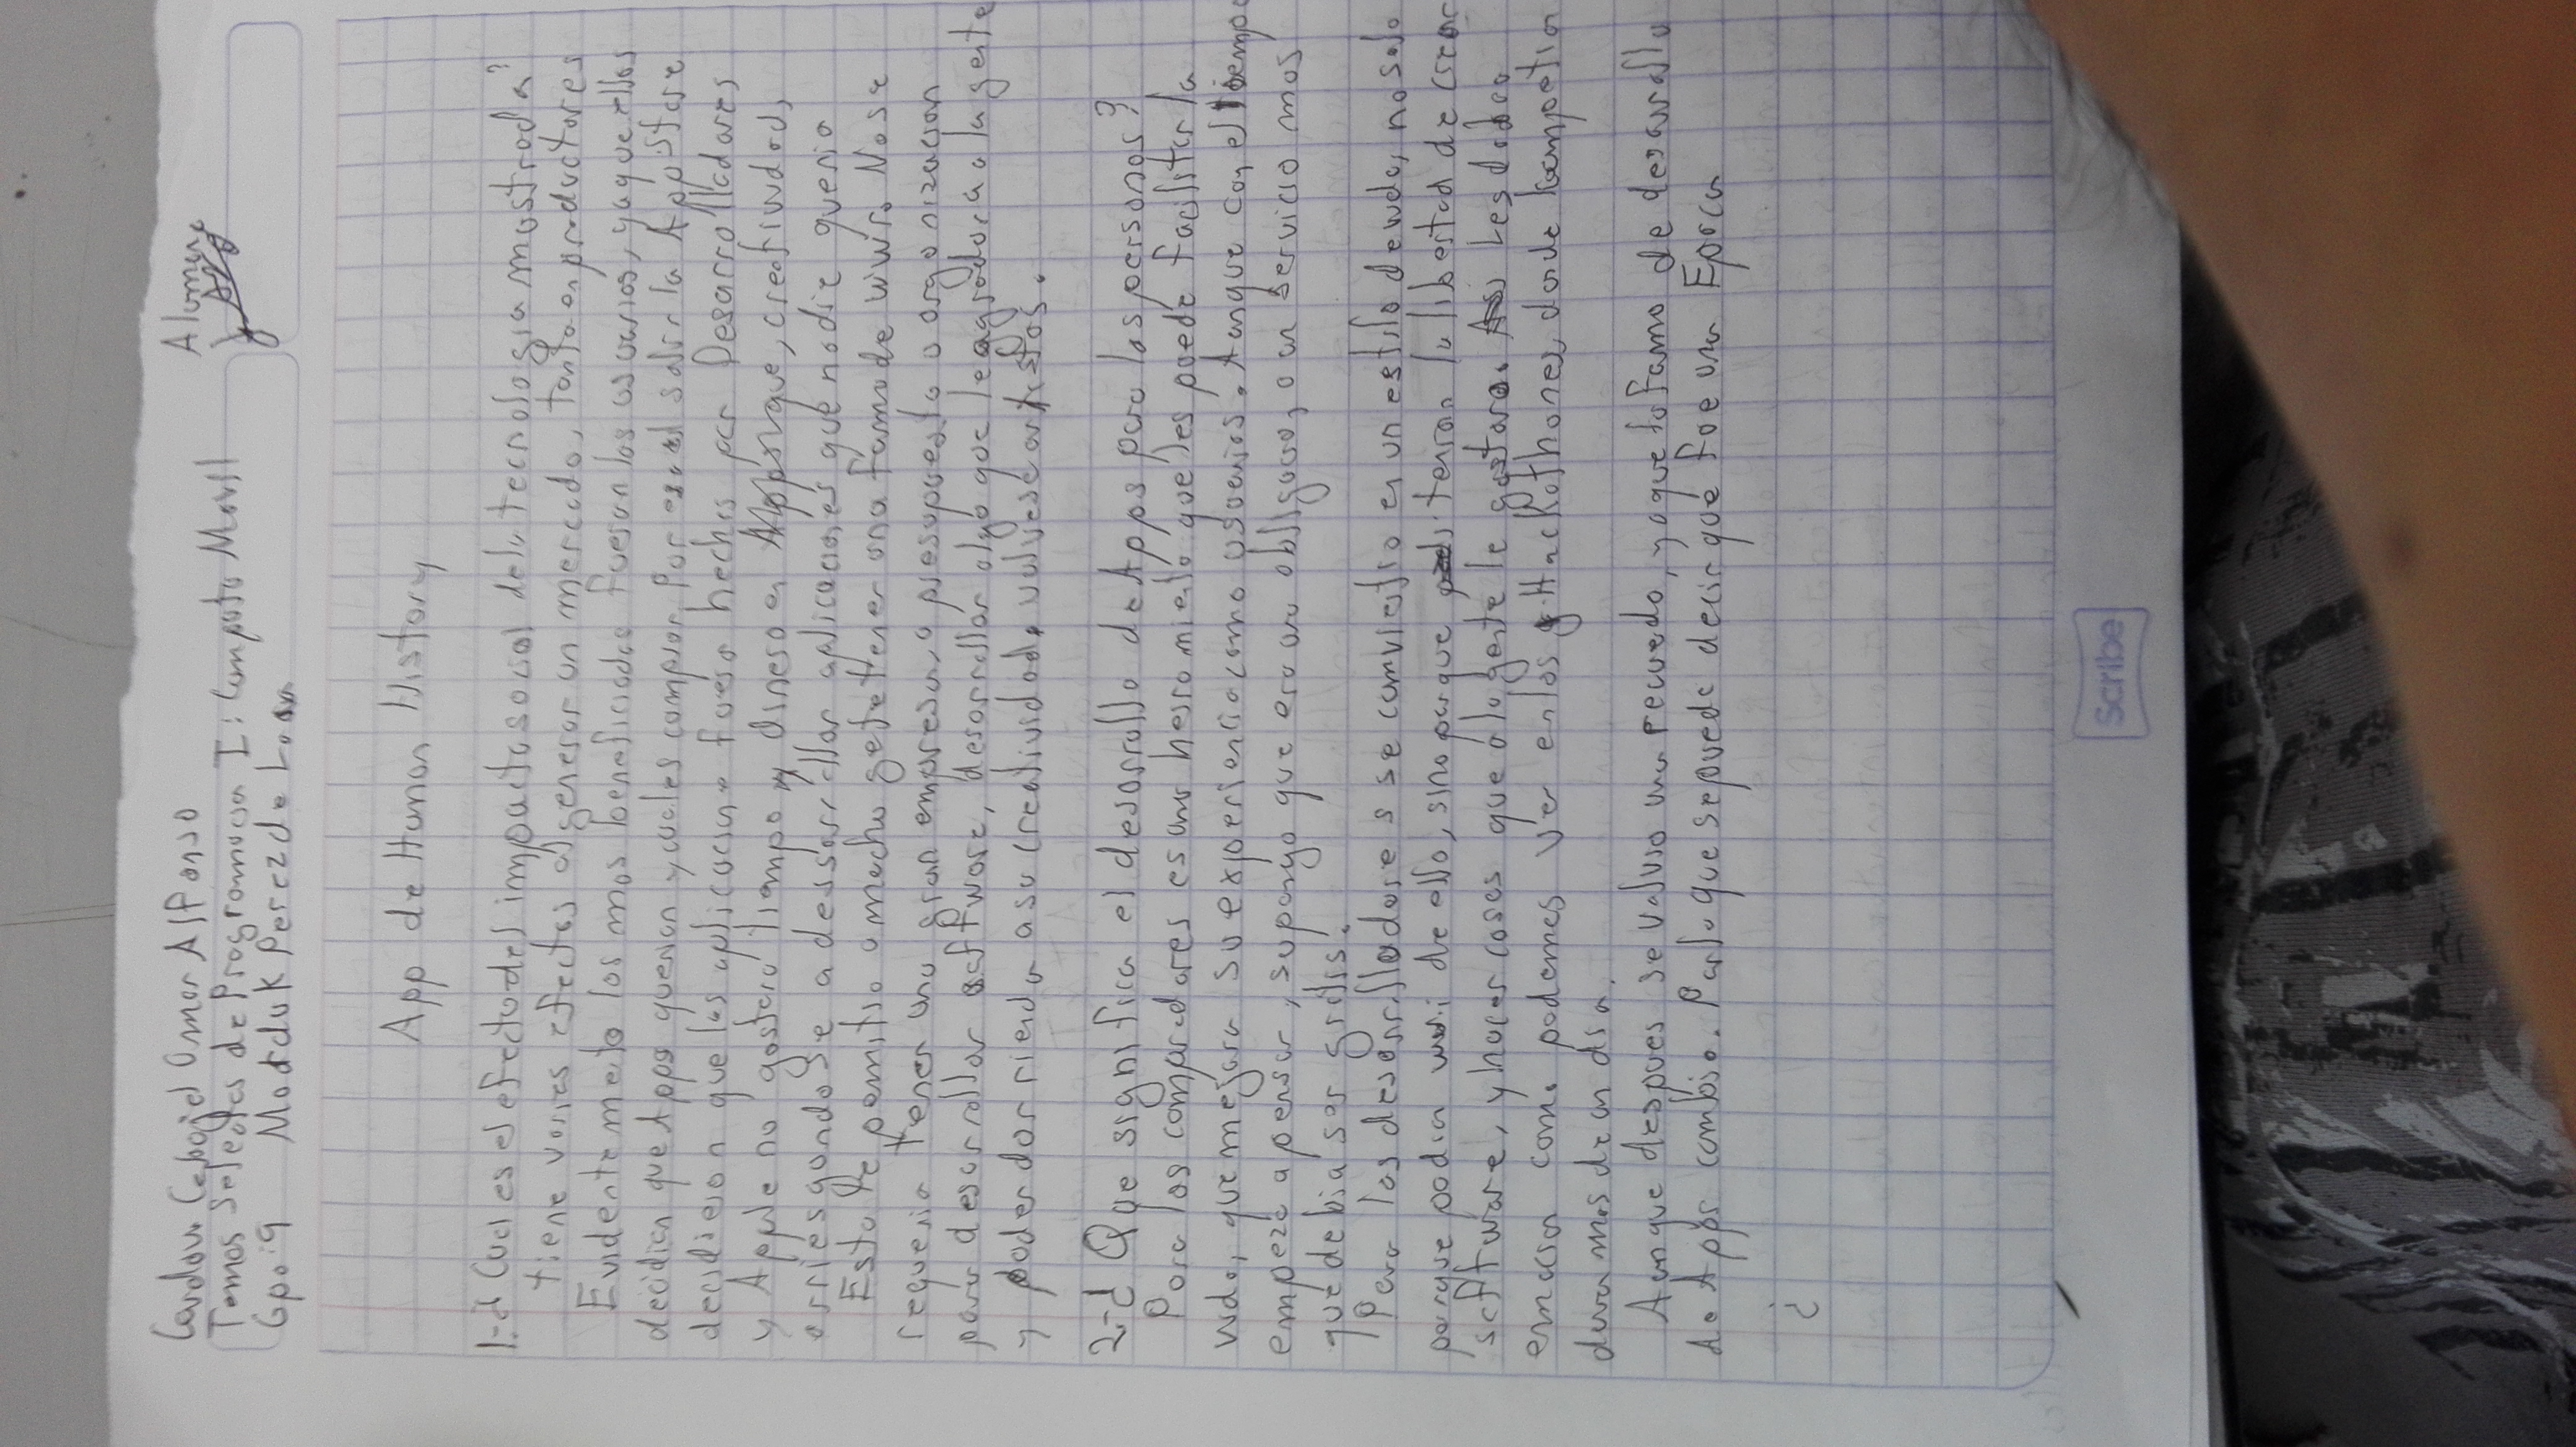 Cardoso Carbajal Omar Alfonso
Alumno
Temas Selectos de Programacion I: Computo Movil
Gpo: 9 Marduk Perez de Lara
App de Human History
1.-¿Cual es el efecto del impacto social de la tecnologia mostrada?
tiene varios efectos al generar un mercado, tanto en productores
Evidentemete los mas beneficiados fueron los usuarios, ya que ellos
decidian que Apps querian y cuales comprar. Por salir la App Store
decidieron que las aplicacione fuera hechas por Desarrolladores
y Apple no gastara tiempo y dinero en App's que, creatividad,
arriesgandose a desarrollar aplicaciones que nadie queria
Esto le permitio a mucha gete tener una forma de vivir. No se
requeria tener una gran empresa, o presupuesto u organizacion
para desarrollar software, desarrollar algo que le agradara a la gente
y poder dar rienda a su creatividad, volverse artistas.
2.-¿Que significa el desarrollo de Apps para las personas?
Para los compradores es una herramieta que les puede facilitar la
vida, que mejora su experiencia como usuarios. Aunque con el tiempo
empeze a pensar, supongo que era una obligacion, o un servicio mas
que debia ser gratis.
Para los desarrolladores se convirtio en un estilo de vida, no solo
porque podian vivir de ello, sino porque tenian la libertad de crear
software, y hacer cosas que a la gente le gustara. Les daba
emocion como podemos ver en los Hackathones, donde competian
dura mas de un dia.
Aunque despues se volvio una recuerdo, ya que la forma de desarrollo
de Apps cambio. Por lo que se puede decir que fue una Epoca
¿
Scribe